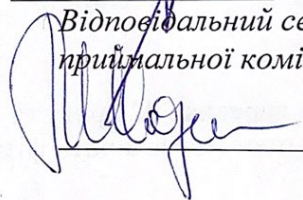 Відповідальний се
приймальної комі